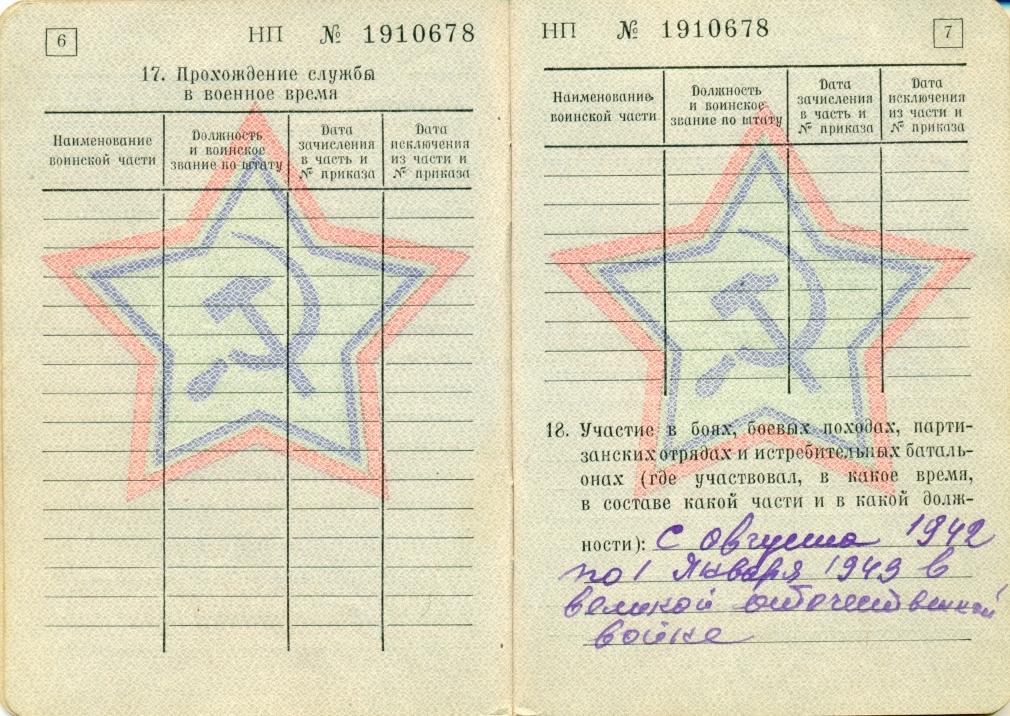 6
НП № 1910678
17. Прохождение службы
в военное время
Наименование
воинской части
Должность
и воинское
звание по штату
Дата
зачисления
в часть и
№ приказа
Дата
исключения
из части и
№ приказа
НП № 1910678
7
Наименование
воинской части
Должность
и воинское
звание по штату
Дата
зачисления
в часть и
№ приказа
Дата
исключения
из части и
№ приказа
18. Участие в боях, боевых походах, парти-
занских отрядах и истребительных баталь-
онах (где участвовал, в какое время,
в составе какой части и в какой долж-
ности): С Августа 1942
по 1 Января 1943 в
великой отечественной
войне